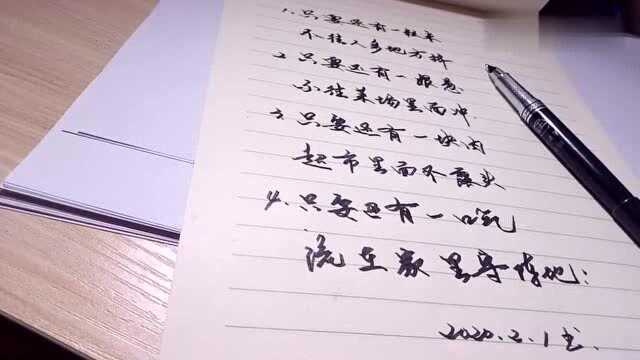 1.只要还有一粒米
不往人多地方挤
2.只要还有一根葱
不往菜场里面冲
3.只要还有一块肉
超市里面不露头
4.只要还有一口气
在家里守阵地:
2020.2.1书